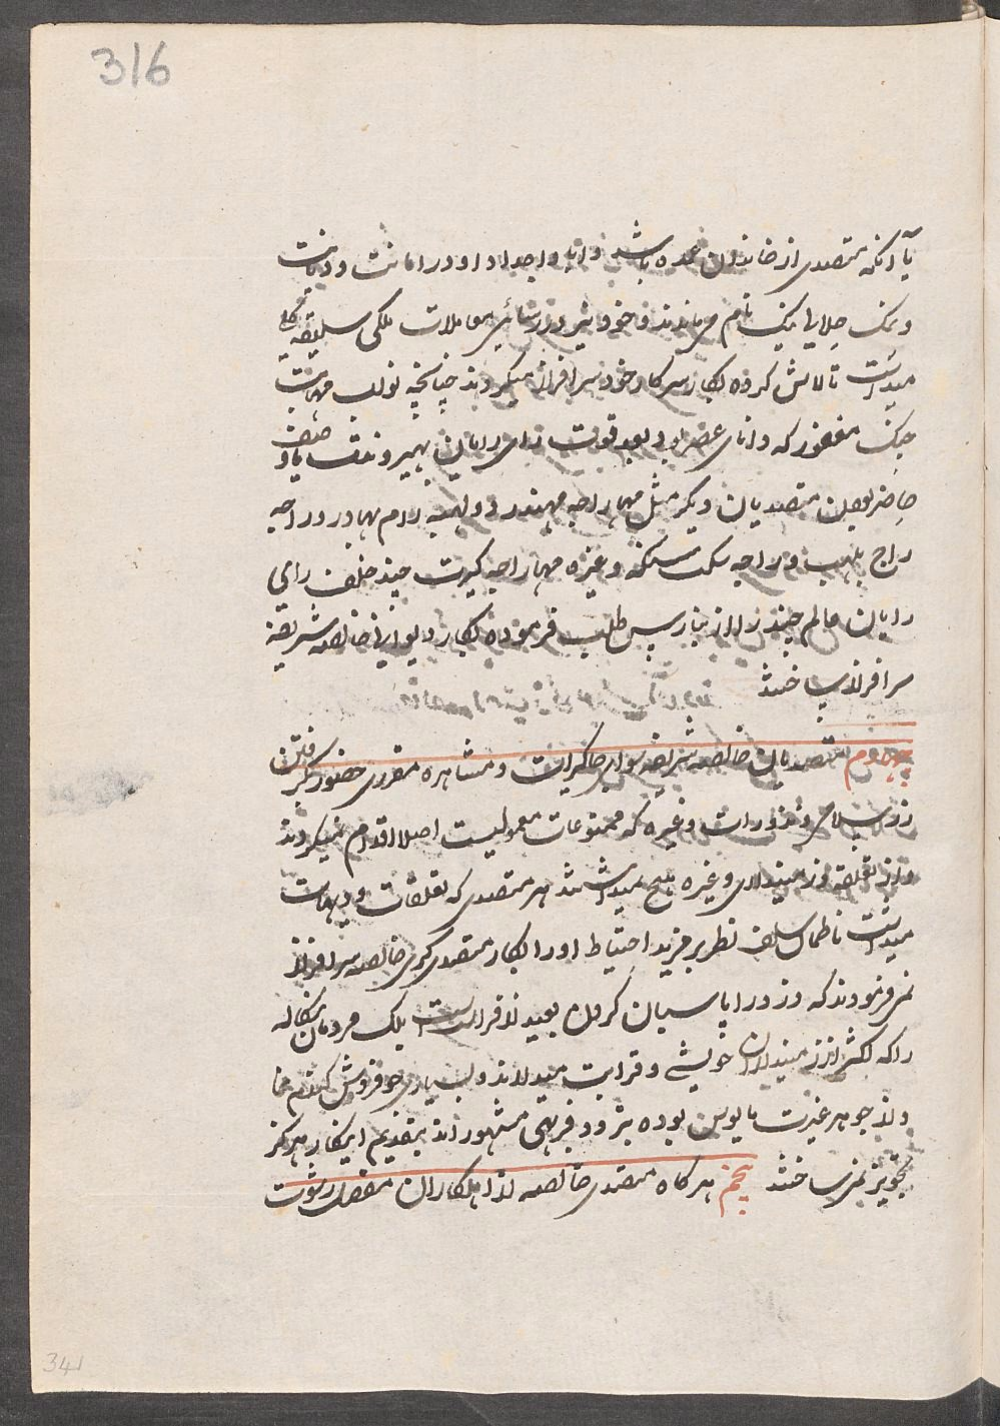 316
یا آنکه متصدی از خاندان عمده باشد و ابا و اجداد او در امانت و دیانت
و نمک حلالی نیک نام میبودند و خود نیز در رسائی معاملات ملکی سلیقه
میداشت تلاش کرده بکار سرکار خود سرافراز میکردند چنانچه نواب مهابت
جنگ مغفور که دانای عصر بود بعد فوت رای رایان
حاضر بودن متصدیان دیگر مثل مهاراجه مهیندر دولبهه رام بهادر و راجه
راج بلبهه و راجه سکت سنگه و غیره مهاراجه کیرت چند خلف رای
رایان عالم چند را از بنارس طلب فرموده بکار دیوانی خالصه شریفه
سرافراز ساختند
چهارم متصدیان خالصه شریفه سوای جاکیرات و مشاهره مقرری حضور گرفتن
زر سلامی و نذورات و غیره که ممنوعات معمولیست اصلا اقدام نمیکردند
و از تعلقه و زمینداری و غیره هیچ نمیداشتند هر متصدی که تعلقات و دیهات
میداشت ناظمان سلف نظر بر مزید احتیاط او را بکار متصدی گری خالصه سرافراز
نمیفرمودند که دزد را پاسبان کردن بعید از فراست است بلکه مردمان بنگاله
را که اکثر از زمینداران خویشی و قرابت میدارند و بسیاری جو فروش گندم نما
و از جوهر غیرت مایوس بوده بتزویر و فریبی مشهور اند بتقدیم اینکار هرگز
تجویز نمی ساختند پنجم هر گاه متصدی خالصه از اهلکاران مفصل رشوت
341